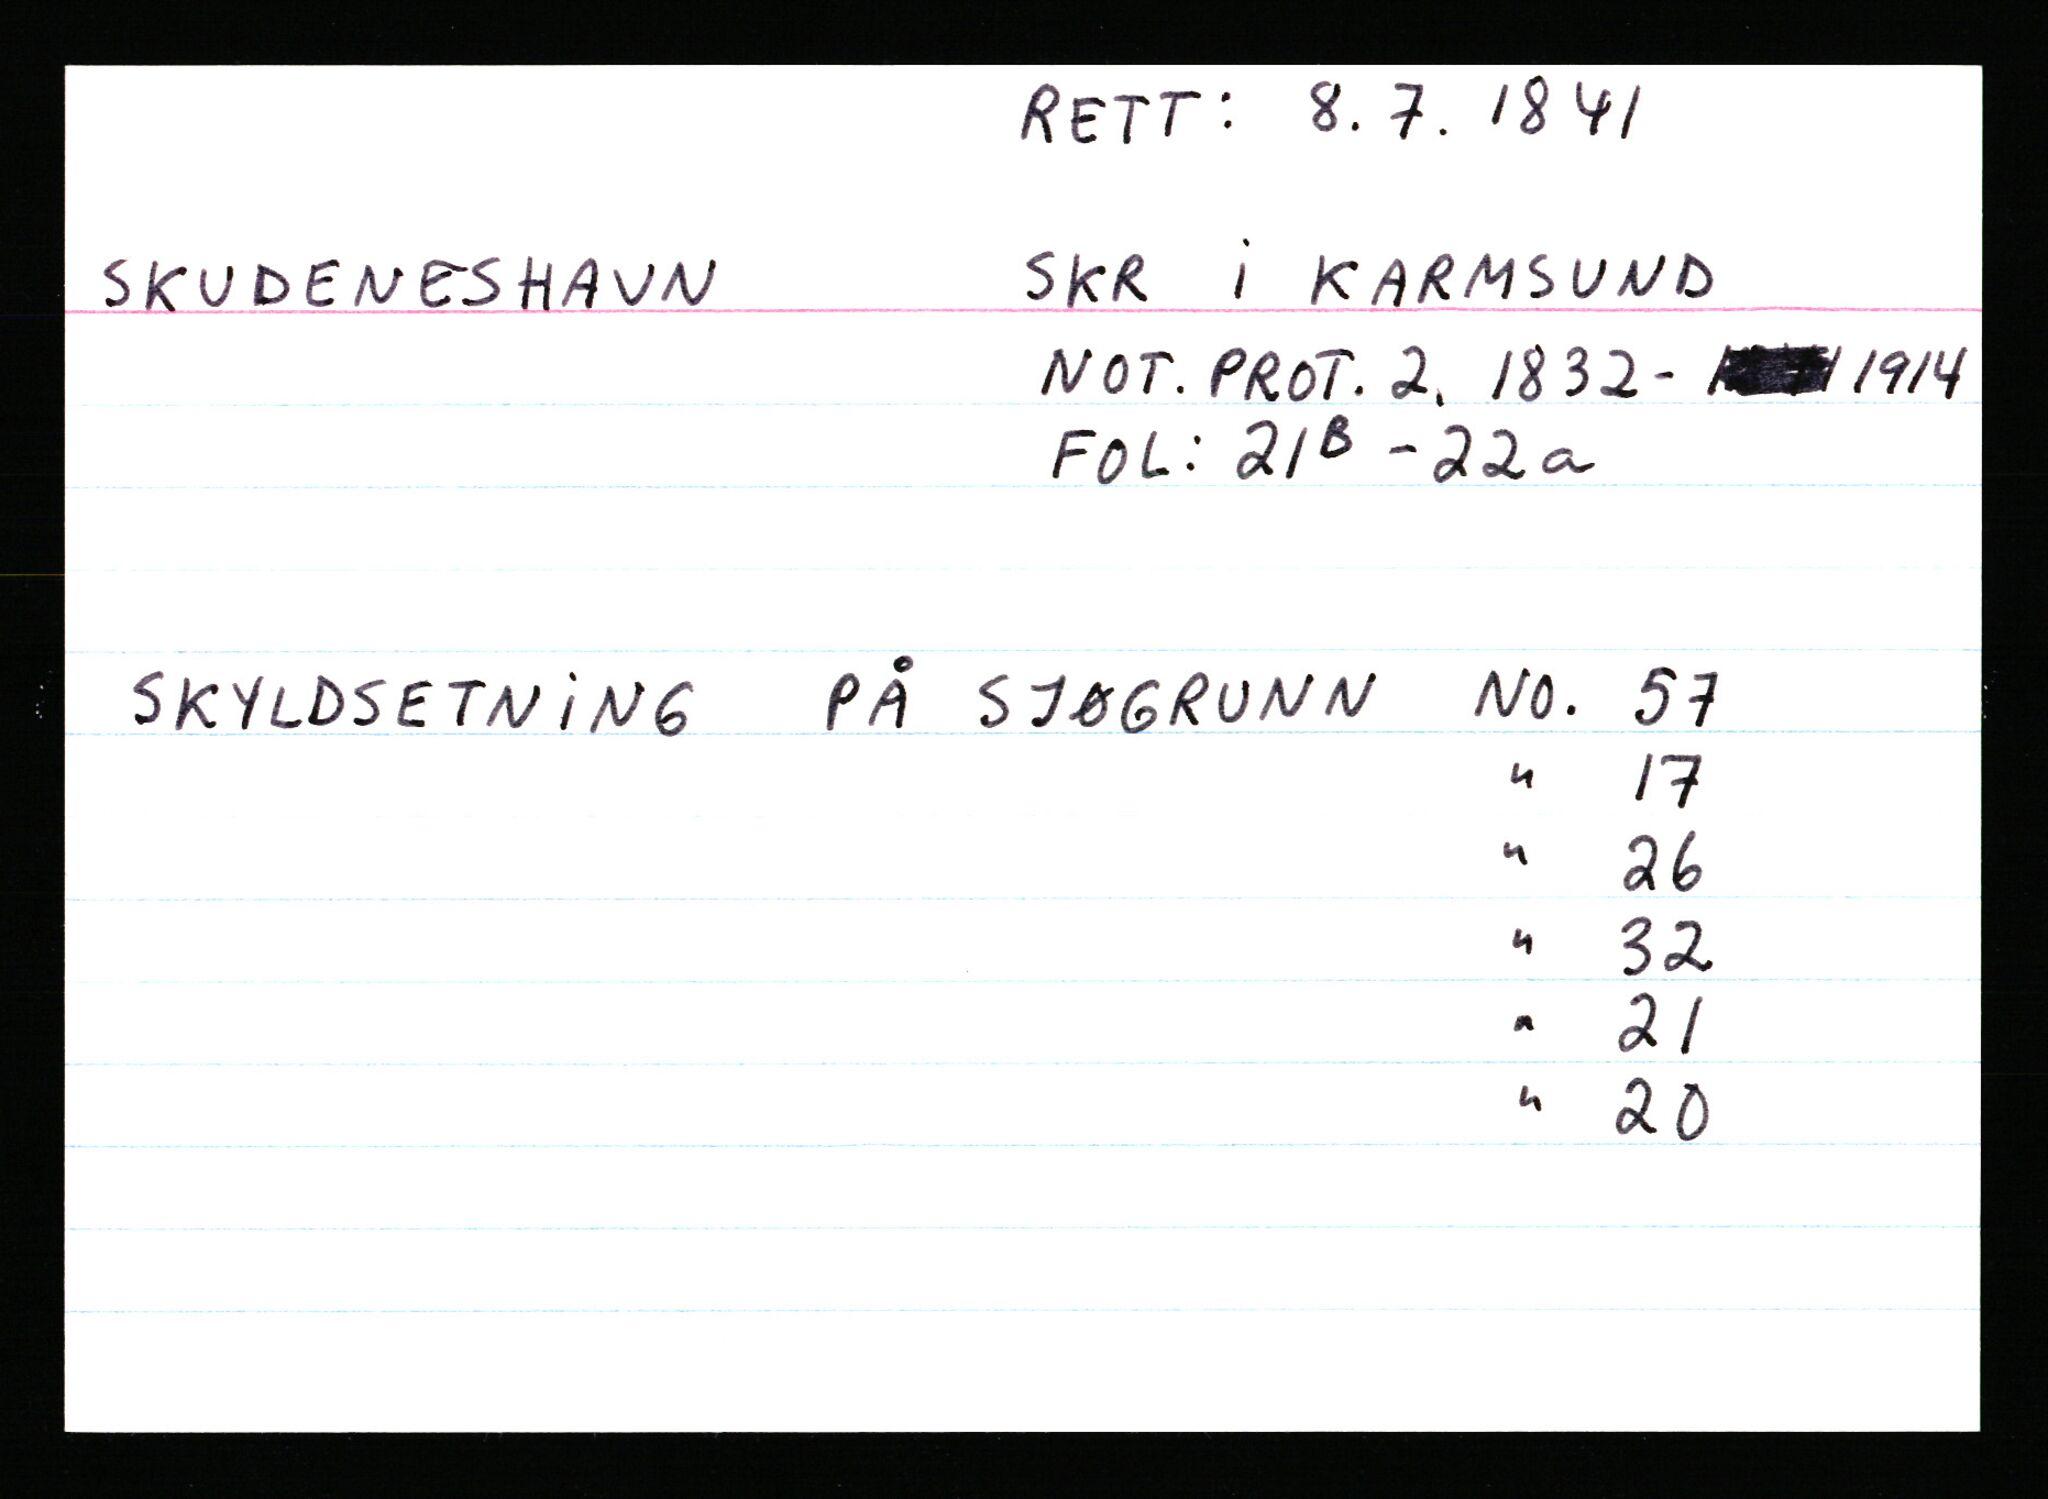 RETT: 8. 7. 1841
SKUDENESHAVN SKR i KARMSUND
NOT. PROT. 2, 1832- 1914
FOL: 21B - 22a
SKYLDSETNiNG PÅ SJØGRUNN NO. 57
" 17
" 26
" 32
" 21
" 20